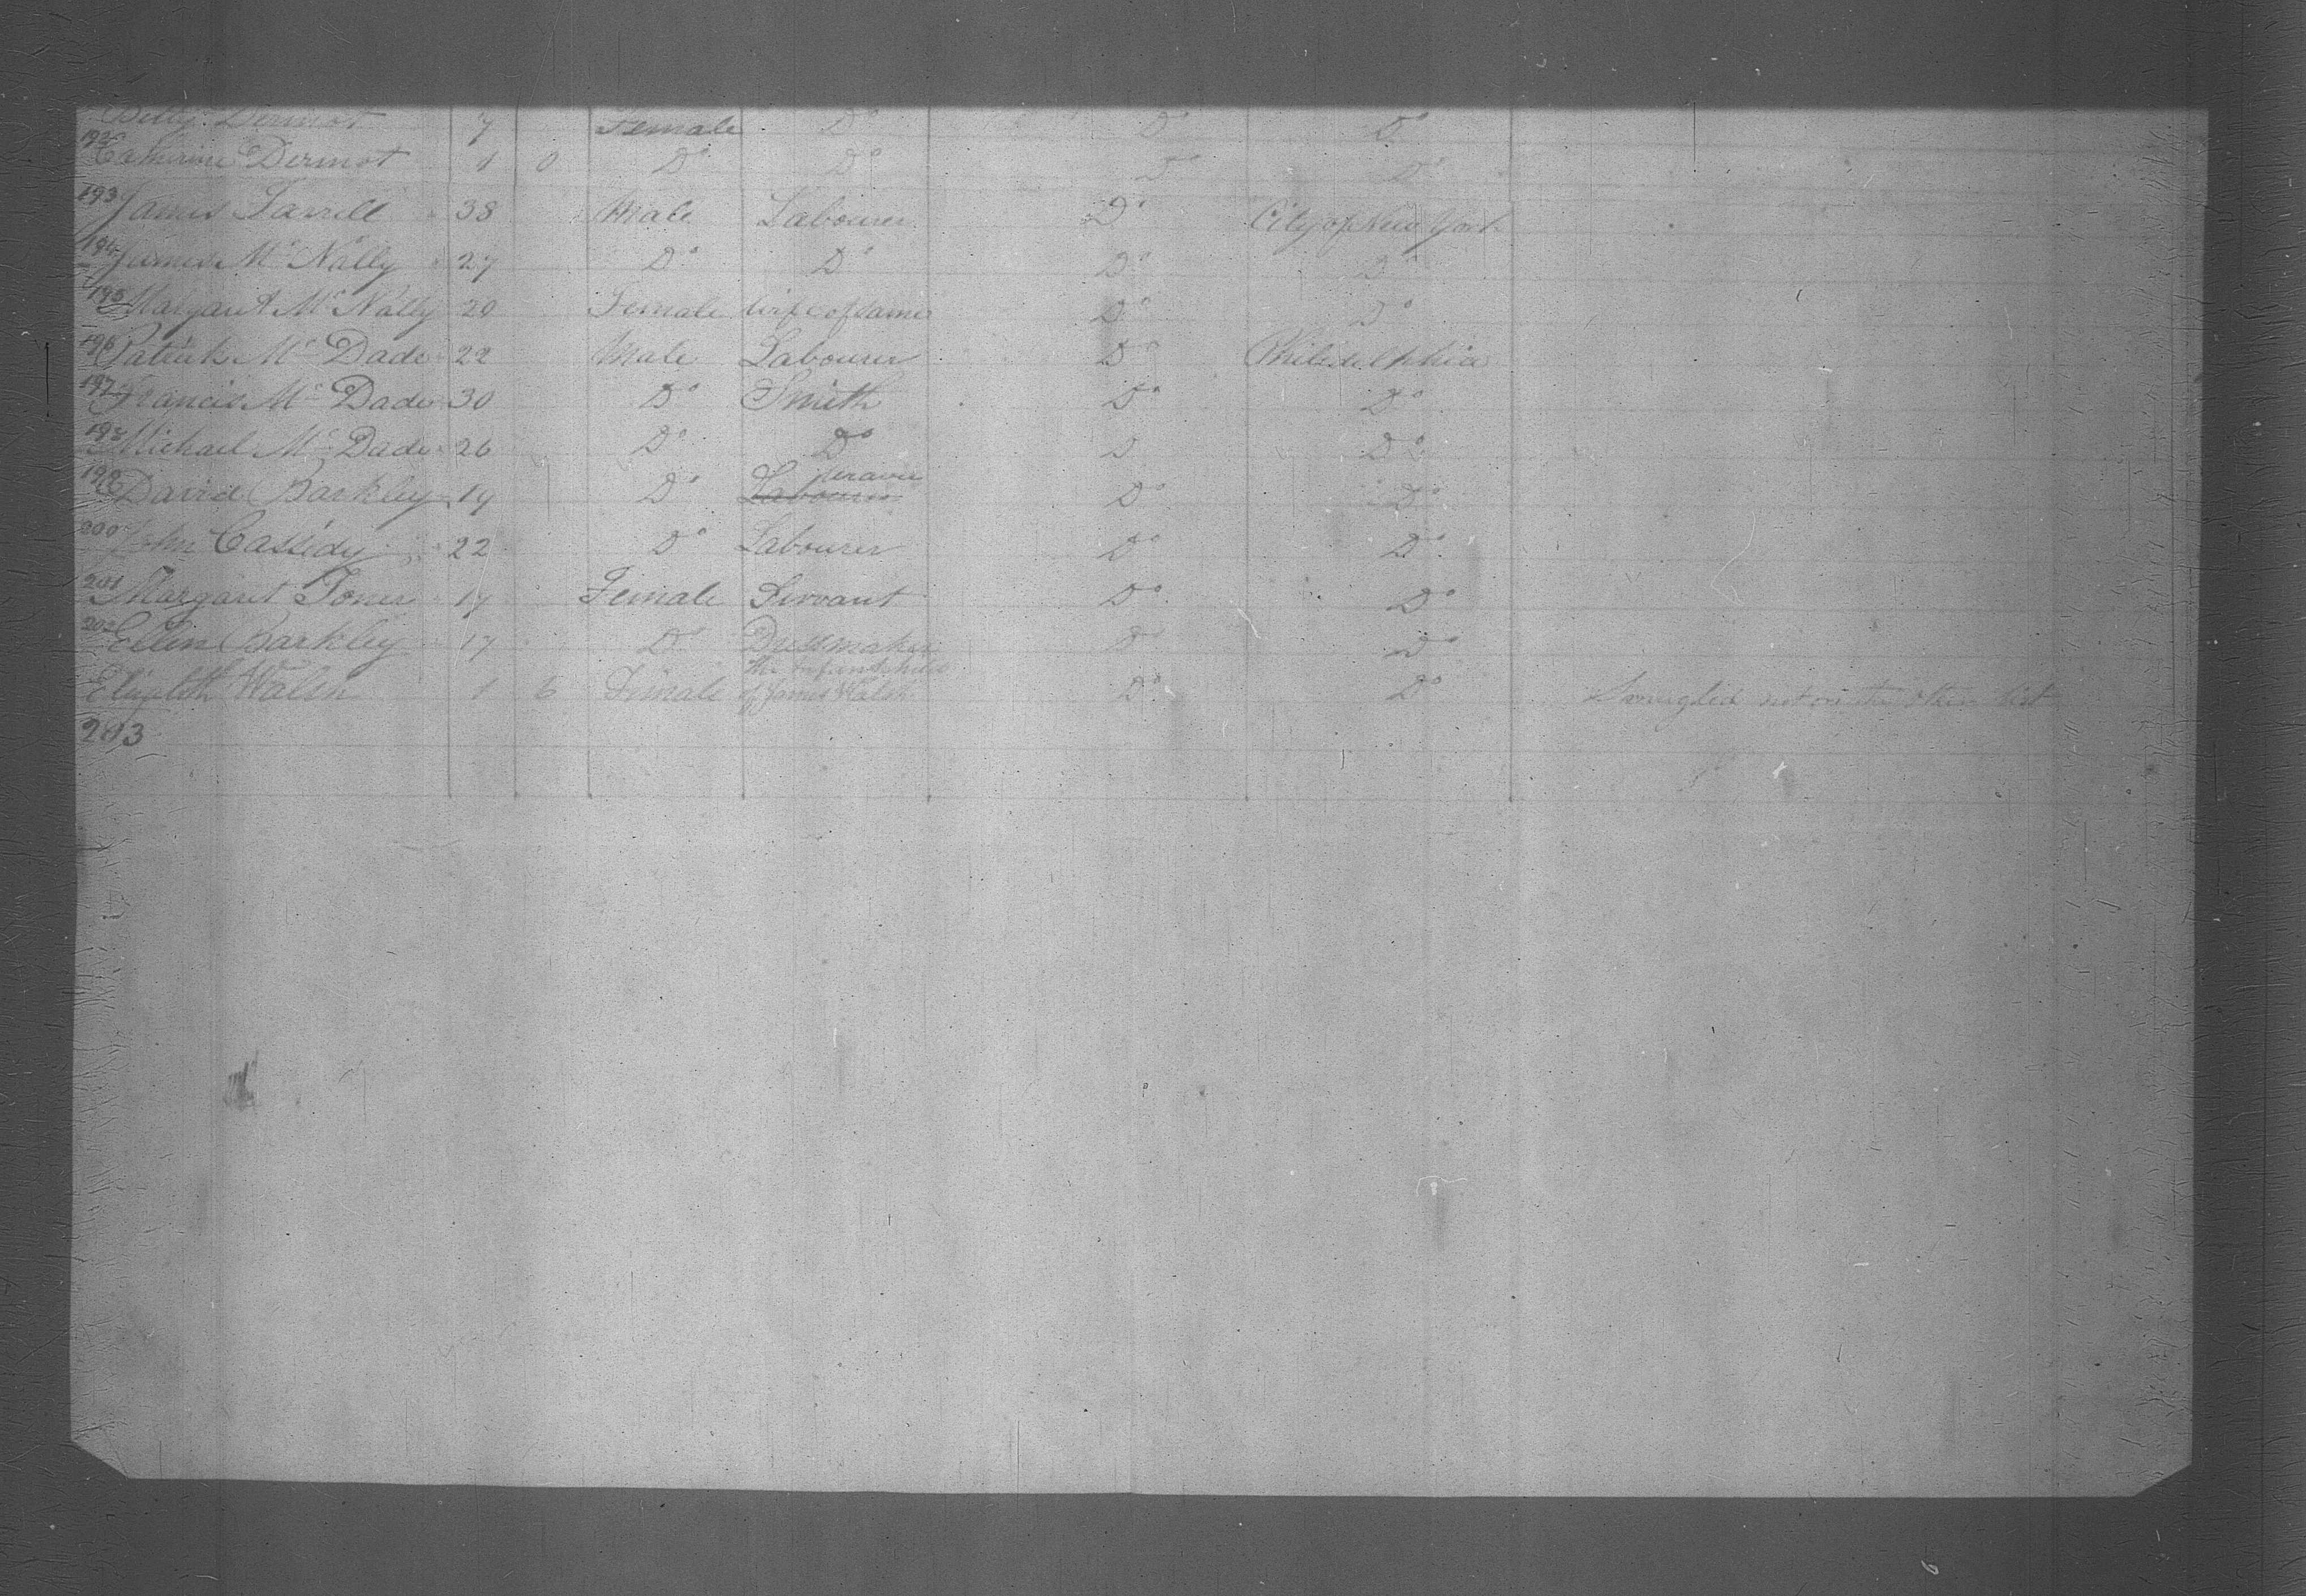 Betty Dermot 7 Female Do Do Do
192 Catherine Dermot 1 0 Do Do Do Do
193 James Farrell 38 Male Labourer Do City of New York
194 James McNally 27 Do Do Do Do
195 Margaret McNally 20 Female Wife of same Do Do
196 Patrick McDade 22 Male Labourer Do Philidelphia
197 Francis McDade 30 Do Smith Do Do
198 Michael McDade 26 Do Do D Do
199 David Barkley 19 Do Labourer Do Do
200 John Cassidy 22 Do Labourer Do Do
201 Margaret Toner 17 Female Servant Do Do
202 Ellen Barkley 17 Do Dressmaker Do Do
the infant child
Elizabeth Walsh 1 6 Female of James Walsh Do Do Smuggled not on the other list
203